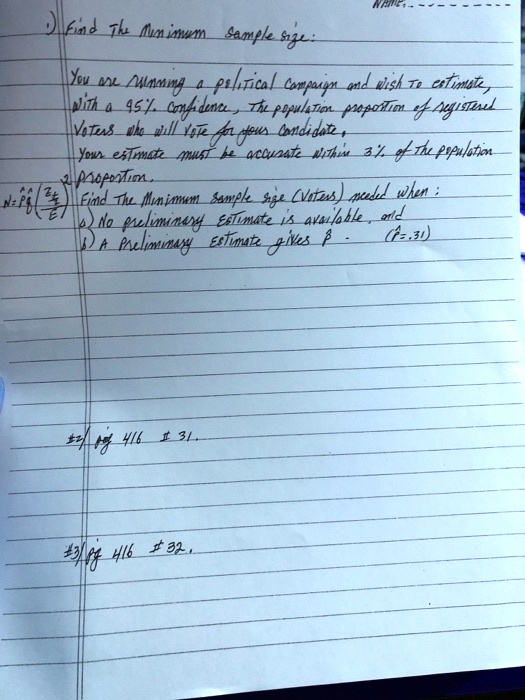 NAME:
1) Find The Minimum Sample size:
You are running a political Campaign and wish To estimate,
With a 95% Confidence, The population proportion of registered
Voters who will vote for your Candidate.
Your estimate must be accurate within 3% of The population
proportion.
N= p̂q̂ (Zc/E)² Find The Minimum Sample Size (Voters) needed when:
a) No preliminary Estimate is available, and
b) A Preliminary Estimate gives p̂ . (p̂=.31)
#2/ pg 416 # 31.
#3/ pg 416 # 32.